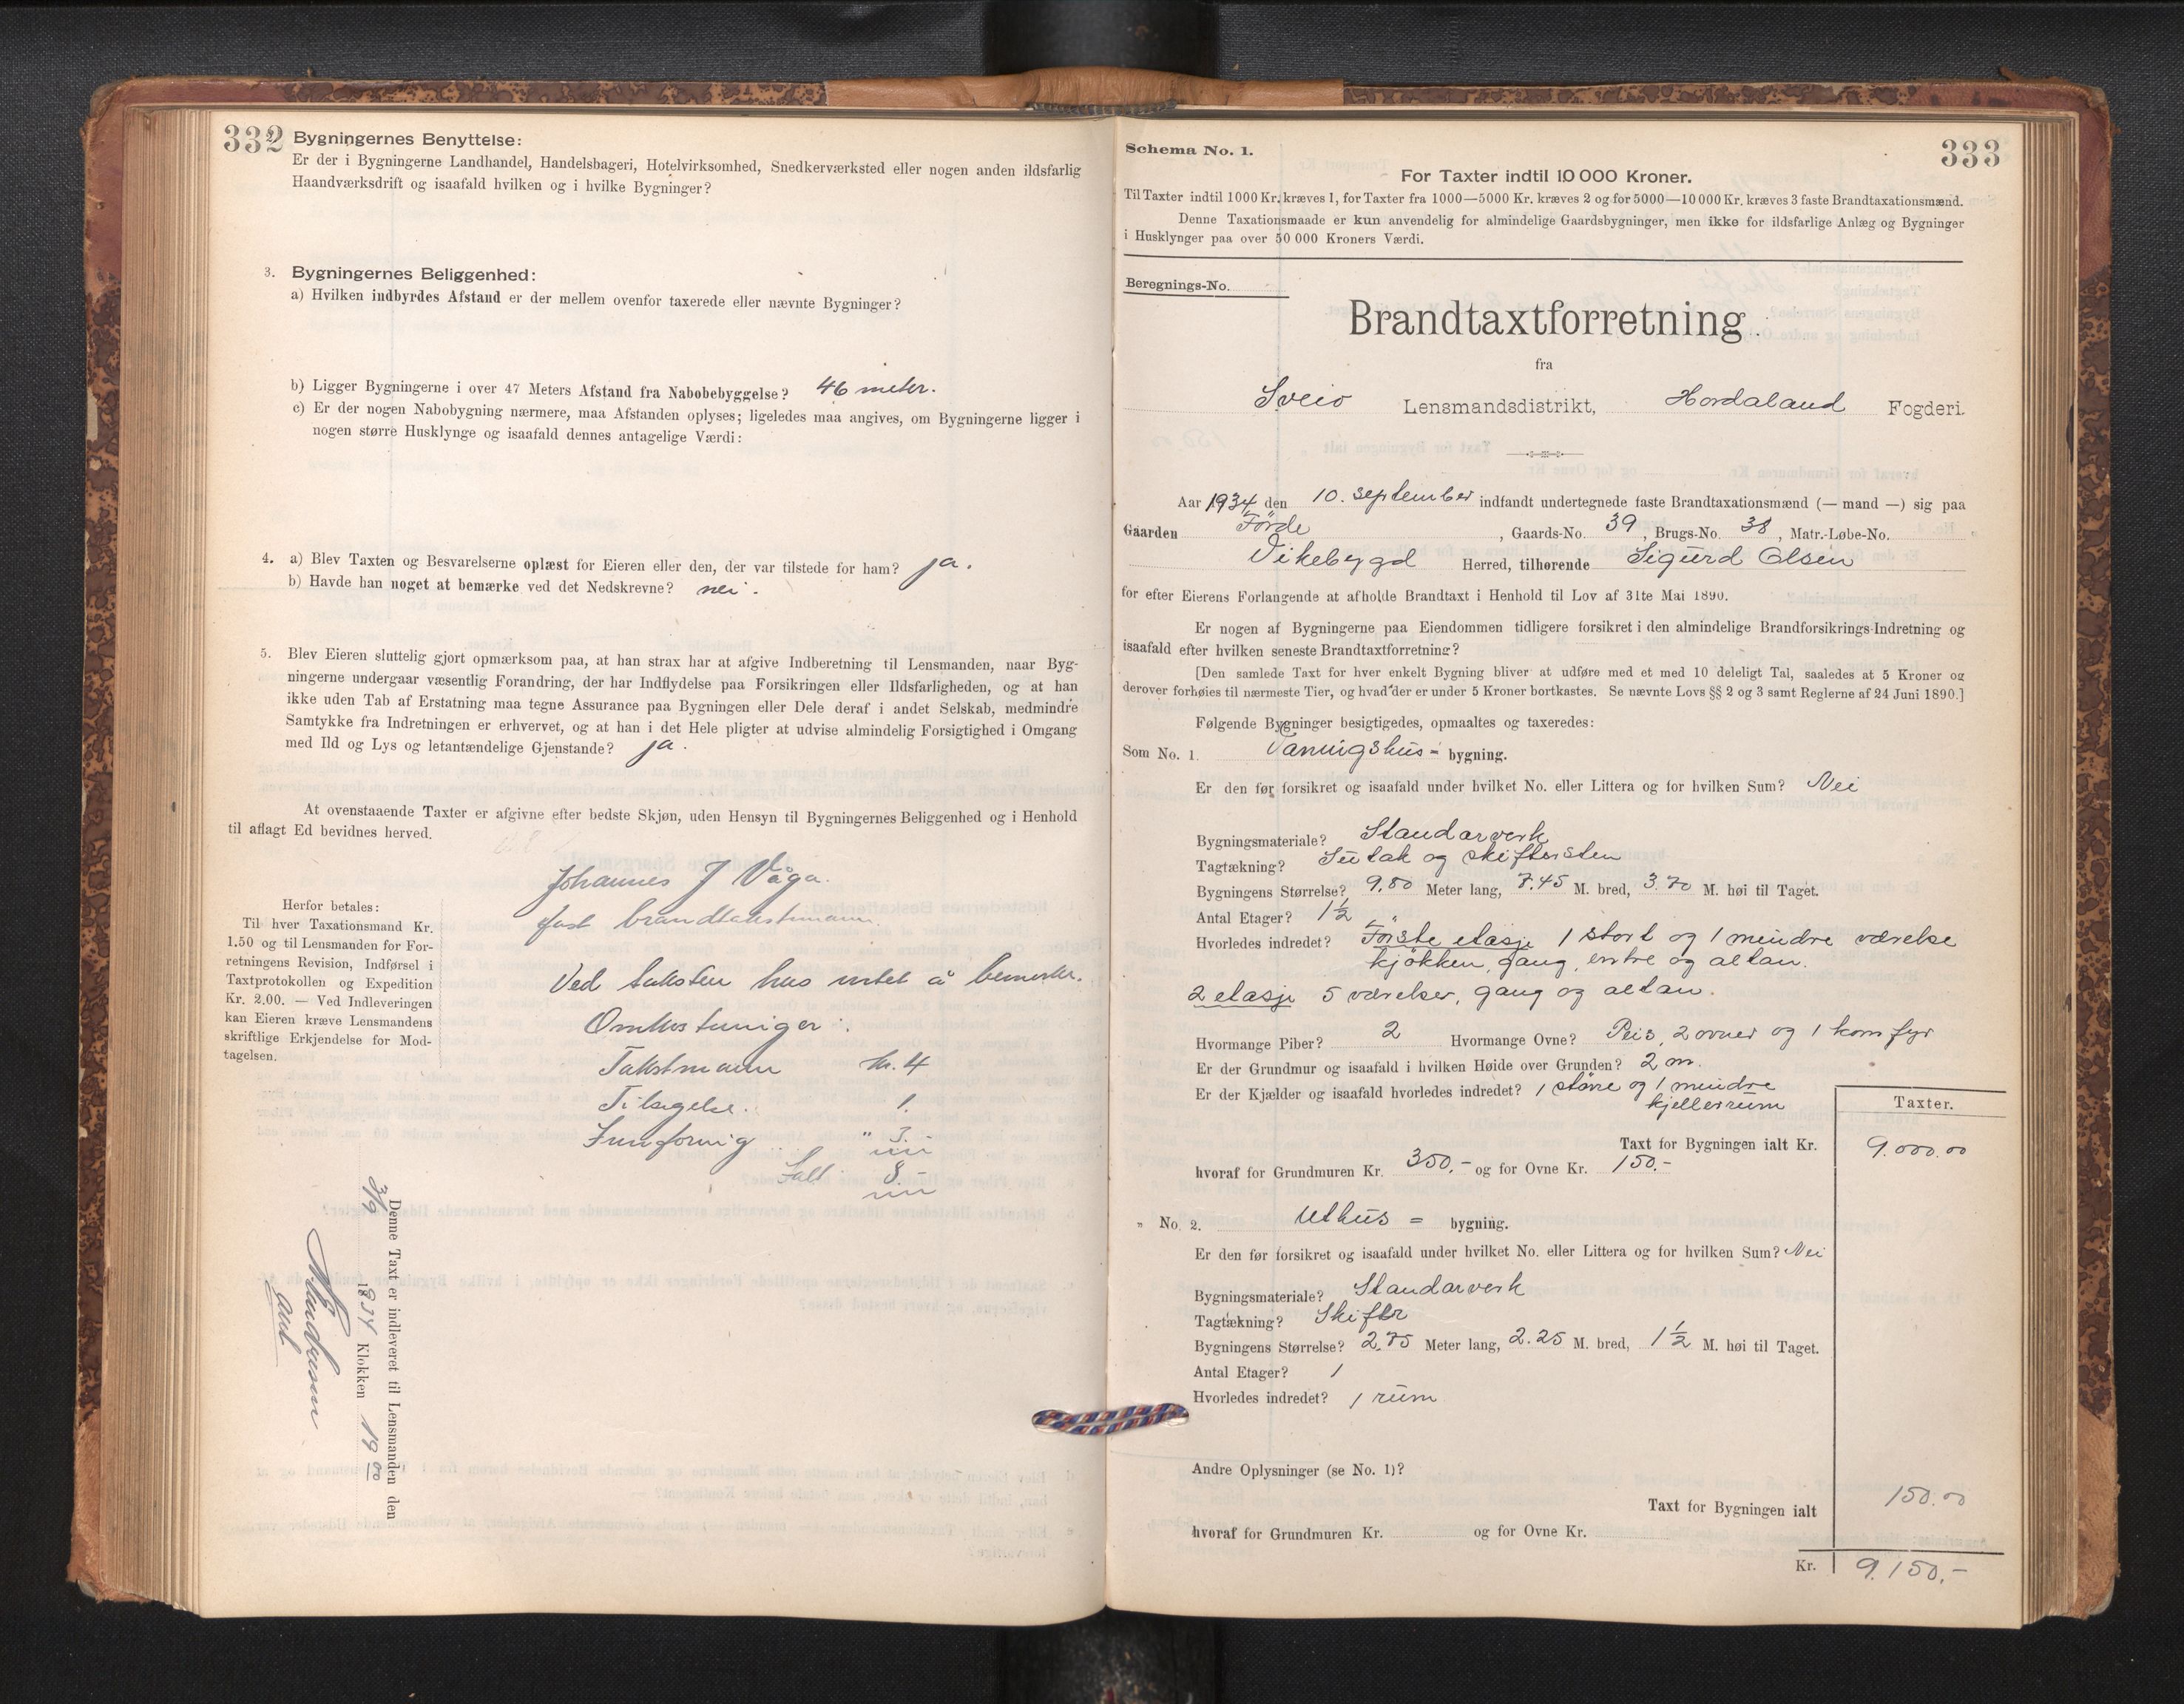 332
Bygningernes Benyttelse:
Er der i Bygningerne Landhandel, Handelsbageri, Hotelvirksomhed, Snedkerværksted eller nogen anden ildsfarlig
Haandværksdrift og isaafald hvilken og i hvilke Bygninger?
3. Bygningernes Beliggenhed:
a) Hvilken indbyrdes Afstand er der mellem ovenfor taxerede eller nævnte Bygninger?
b) Ligger Bygningerne i over 47 Meters Afstand fra Nabobebyggelse? 46 meter.
c) Er der nogen Nabobygning nærmere, maa Afstanden oplyses; ligeledes maa angives, om Bygningerne ligger i
nogen større Husklynge og isaafald dennes antagelige Værdi:
4. a) Blev Taxten og Besvarelserne oplæst for Eieren eller den, der var tilstede for ham? ja.
b) Havde han noget at bemærke ved det Nedskrevne? nei.
5. Blev Eieren sluttelig gjort opmærksom paa, at han strax har at afgive Indberetning til Lensmanden, naar Byg-
ningerne undergaar væsentlig Forandring, der har Indflydelse paa Forsikringen eller Ildsfarligheden, og at han
ikke uden Tab af Erstatning maa tegne Assurance paa Bygningen eller Dele deraf i andet Selskab, medmindre
Samtykke fra Indretningen er erhvervet, og at han i det Hele pligter at udvise almindelig Forsigtighed i Omgang
med Ild og Lys og letantændelige Gjenstande? ja.
At ovenstaaende Taxter er afgivne efter bedste Skjøn, uden Hensyn til Bygningernes Beliggenhed og i Henhold
til aflagt Ed bevidnes herved.
Johannes J Våga.
fast brandtakstmann.
Herfor betales:
Til hver Taxationsmand Kr.
1.50 og til Lensmanden for For-
retningens Revision, Indførsel i
Taxtprotokollen og Expedition
Kr. 2.00. — Ved Indleveringen
kan Eieren kræve Lensmandens
skriftlige Erkjendelse for Mod-
tagelsen.
Ved taksten has intet å bemerke.
Omkostninger:
Takstmann kr. 4
1.
" 3.-
Ialt 8.-
Denne Taxt er indleveret til Lensmanden den
1934 Klokken 19 00
Schema No. 1.
333
For Taxter indtil 10 000 Kroner.
Til Taxter indtil 1000 Kr. kræves 1, for Taxter fra 1000—5000 Kr. kræves 2 og for 5000—10 000 Kr. kræves 3 faste Brandtaxationsmænd.
Denne Taxationsmaade er kun anvendelig for almindelige Gaardsbygninger, men ikke for ildsfarlige Anlæg og Bygninger
i Husklynger paa over 50 000 Kroners Værdi.
Beregnings-No.
Brandtaxtforretning
fra
Sveio Lensmandsdistrikt, Hordaland Fogderi.
Aar 1934 den 10. september indfandt undertegnede faste Brandtaxationsmænd (— mand —) sig paa
Gaarden Førde, Gaards-No. 39, Brugs-No. 38, Matr.-Løbe-No.
Vikebygd Herred, tilhørende Sigurd Olsen
for efter Eierens Forlangende at afholde Brandtaxt i Henhold til Lov af 31te Mai 1890.
Er nogen af Bygningerne paa Eiendommen tidligere forsikret i den almindelige Brandforsikrings-Indretning og
isaafald efter hvilken seneste Brandtaxtforretning?
[Den samlede Taxt for hver enkelt Bygning bliver at udføre med et med 10 deleligt Tal, saaledes at 5 Kroner og
derover forhøies til nærmeste Tier, og hvad der er under 5 Kroner bortkastes. Se nævnte Lovs §§ 2 og 3 samt Reglerne af 24 Juni 1890.]
Følgende Bygninger besigtigedes, opmaaltes og taxeredes:
Som No. 1. Våningshus = bygning.
Er den før forsikret og isaafald under hvilket No. eller Littera og for hvilken Sum? Nei
Bygningsmateriale? Standarverk
Tagtækning? Sutak og skifersten
Bygningens Størrelse? 9.80 Meter lang, 7.45 M. bred, 3.70 M. høi til Taget.
Antal Etager? 1½
Hvorledes indredet? Første etasje 1 stort og 1 mindre værelse
kjøkken, gang, entre og altan.
2 etasje 5 værelser, gang og altan.
Hvormange Piber? 2 Hvormange Ovne? Peis, 2 ovner og 1 komfyr
Er der Grundmur og isaafald i hvilken Høide over Grunden? 2 m.
Er der Kjælder og isaafald hvorledes indredet? 1 større og 1 mindre
kjellerrum
Taxter.
Taxt for Bygningen ialt Kr. 9.000.00
hvoraf for Grundmuren Kr. 350.- og for Ovne Kr. 150.-
" No. 2. Uthus = bygning.
Er den før forsikret og isaafald under hvilket No. eller Littera og for hvilken Sum? Nei
Bygningsmateriale? Standarverk
Tagtækning? Skifer
Bygningens Størrelse? 2.75 Meter lang, 2.25 M. bred, 1½ M. høi til Taget.
Antal Etager? 1
Hvorledes indredet? 1 rum
Andre Oplysninger (se No. 1)?
Taxt for Bygningen ialt 150.00
hvoraf for Grundmuren Kr. og for Ovne Kr.
Kr. 9.150.-